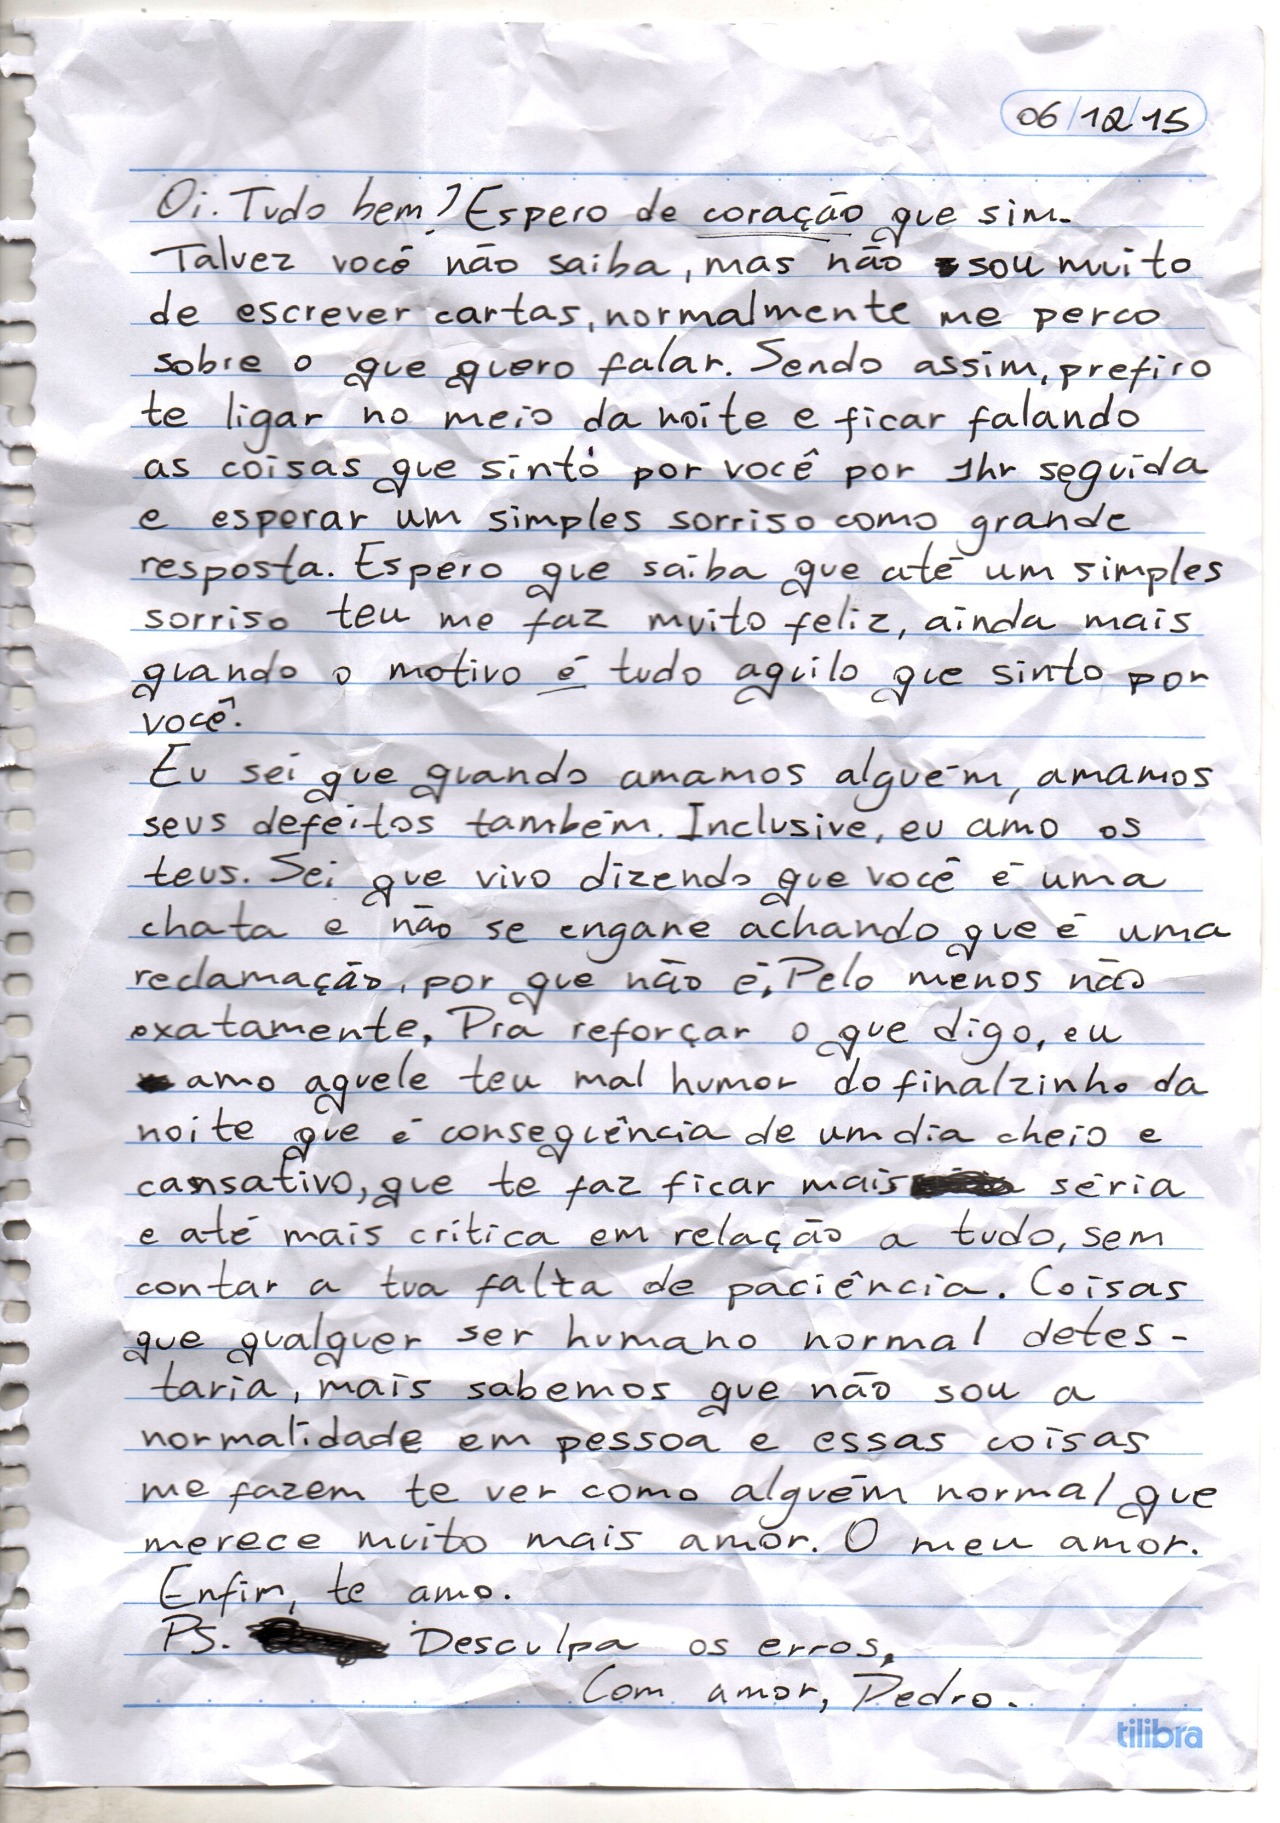 06/12/15
Oi. Tudo bem? Espero de coração que sim.
Talvez você não saiba, mas não sou muito
de escrever cartas, normalmente me perco
sobre o que quero falar. Sendo assim, prefiro
te ligar no meio da noite e ficar falando
as coisas que sinto por você por 1hr seguida
e esperar um simples sorriso como grande
resposta. Espero que saiba que até um simples
sorriso teu me faz muito feliz, ainda mais
quando o motivo é tudo aquilo que sinto por
você.
Eu sei que quando amamos alguém, amamos
seus defeitos também. Inclusive, eu amo os
teus. Sei que vivo dizendo que você é uma
chata e não se engane achando que é uma
reclamação, por que não é. Pelo menos não
exatamente. Pra reforçar o que digo, eu
amo aquele teu mal humor do finalzinho da
noite que é consequência de um dia cheio e
cansativo, que te faz ficar mais séria
e até mais crítica em relação a tudo, sem
contar a tua falta de paciência. Coisas
que qualquer ser humano normal detes-
taria, mais sabemos que não sou a
normalidade em pessoa e essas coisas
me fazem te ver como alguém normal que
merece muito mais amor. O meu amor.
Enfim, te amo.
PS. Desculpa os erros.
Com amor, Pedro.
tilibra